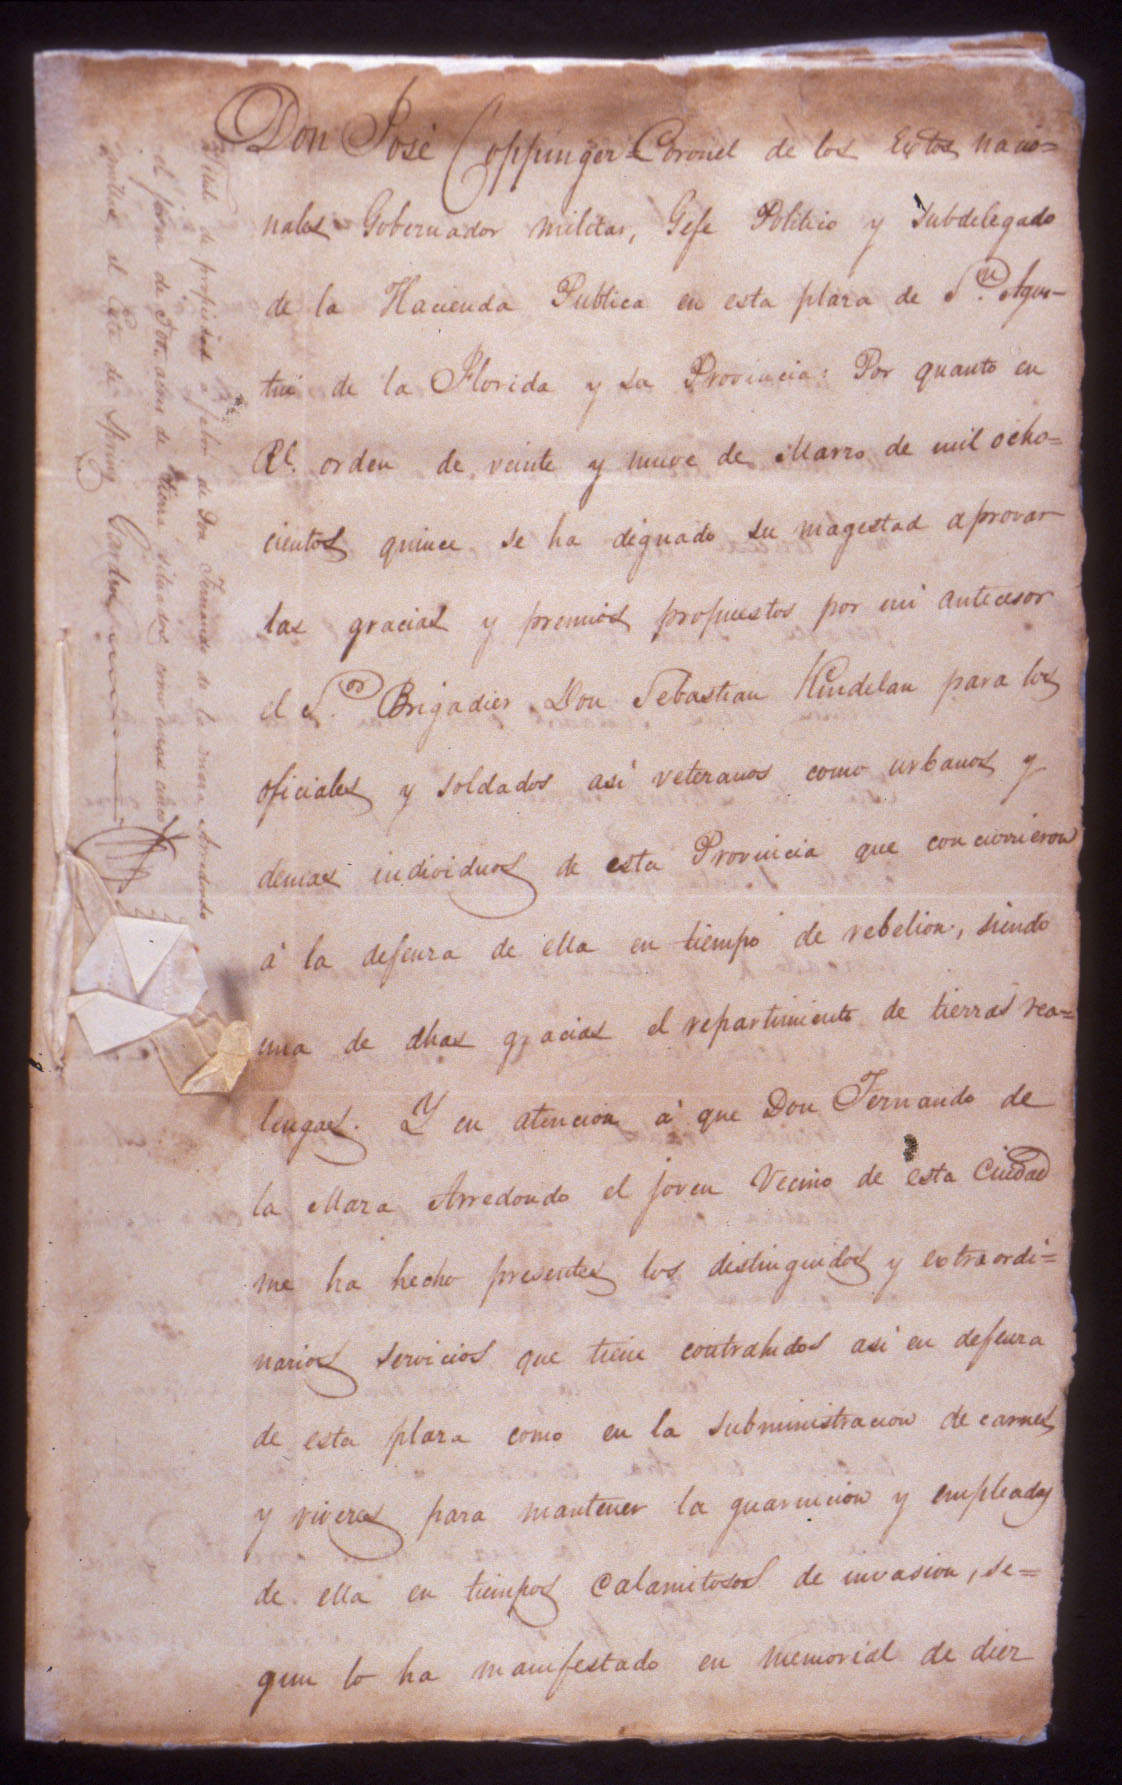 Don José Coppinger Coronel de los Extos nacio=
nales Gobernador militar, Gefe Politico y Subdelegado
de la Hacienda Publica en esta plaza de Sn. Agus-
tin de la Florida y su Provincia: Por quanto en
Rl. orden de veinte y nueve de Marzo de mil ocho=
cientos quince se ha dignado su magestad aprovar
las gracias y premios propuestos por mi antecesor
el Sor. Brigadier Don Sebastian Kindelan para los
oficiales y soldados asi veteranos como urbanos y
demas individuos de esta Provincia que concurrieron
á la defensa de ella en tiempo de rebelion, siendo
una de dhas gracias el repartimiento de tierras rea=
lengas. Y en atencion á que Don Fernando de
la Maza Arredondo el joven Vecino de esta Ciudad
me ha hecho presentes los distinguidos y extraordi=
narios servicios que tiene contrahidos asi en defensa
de esta plaza como en la subministracion de carnes
y viveres para mantener la guarnicion y empleados
de ella en tiempos calamitosos de invasion, se=
gun lo ha manifestado en memorial de diez
Titul de propiedad a favor de Don Fernando de la maza Arredondo
el joven de acres de tierra situados como unas cinco
millas al Este de Spring Garden